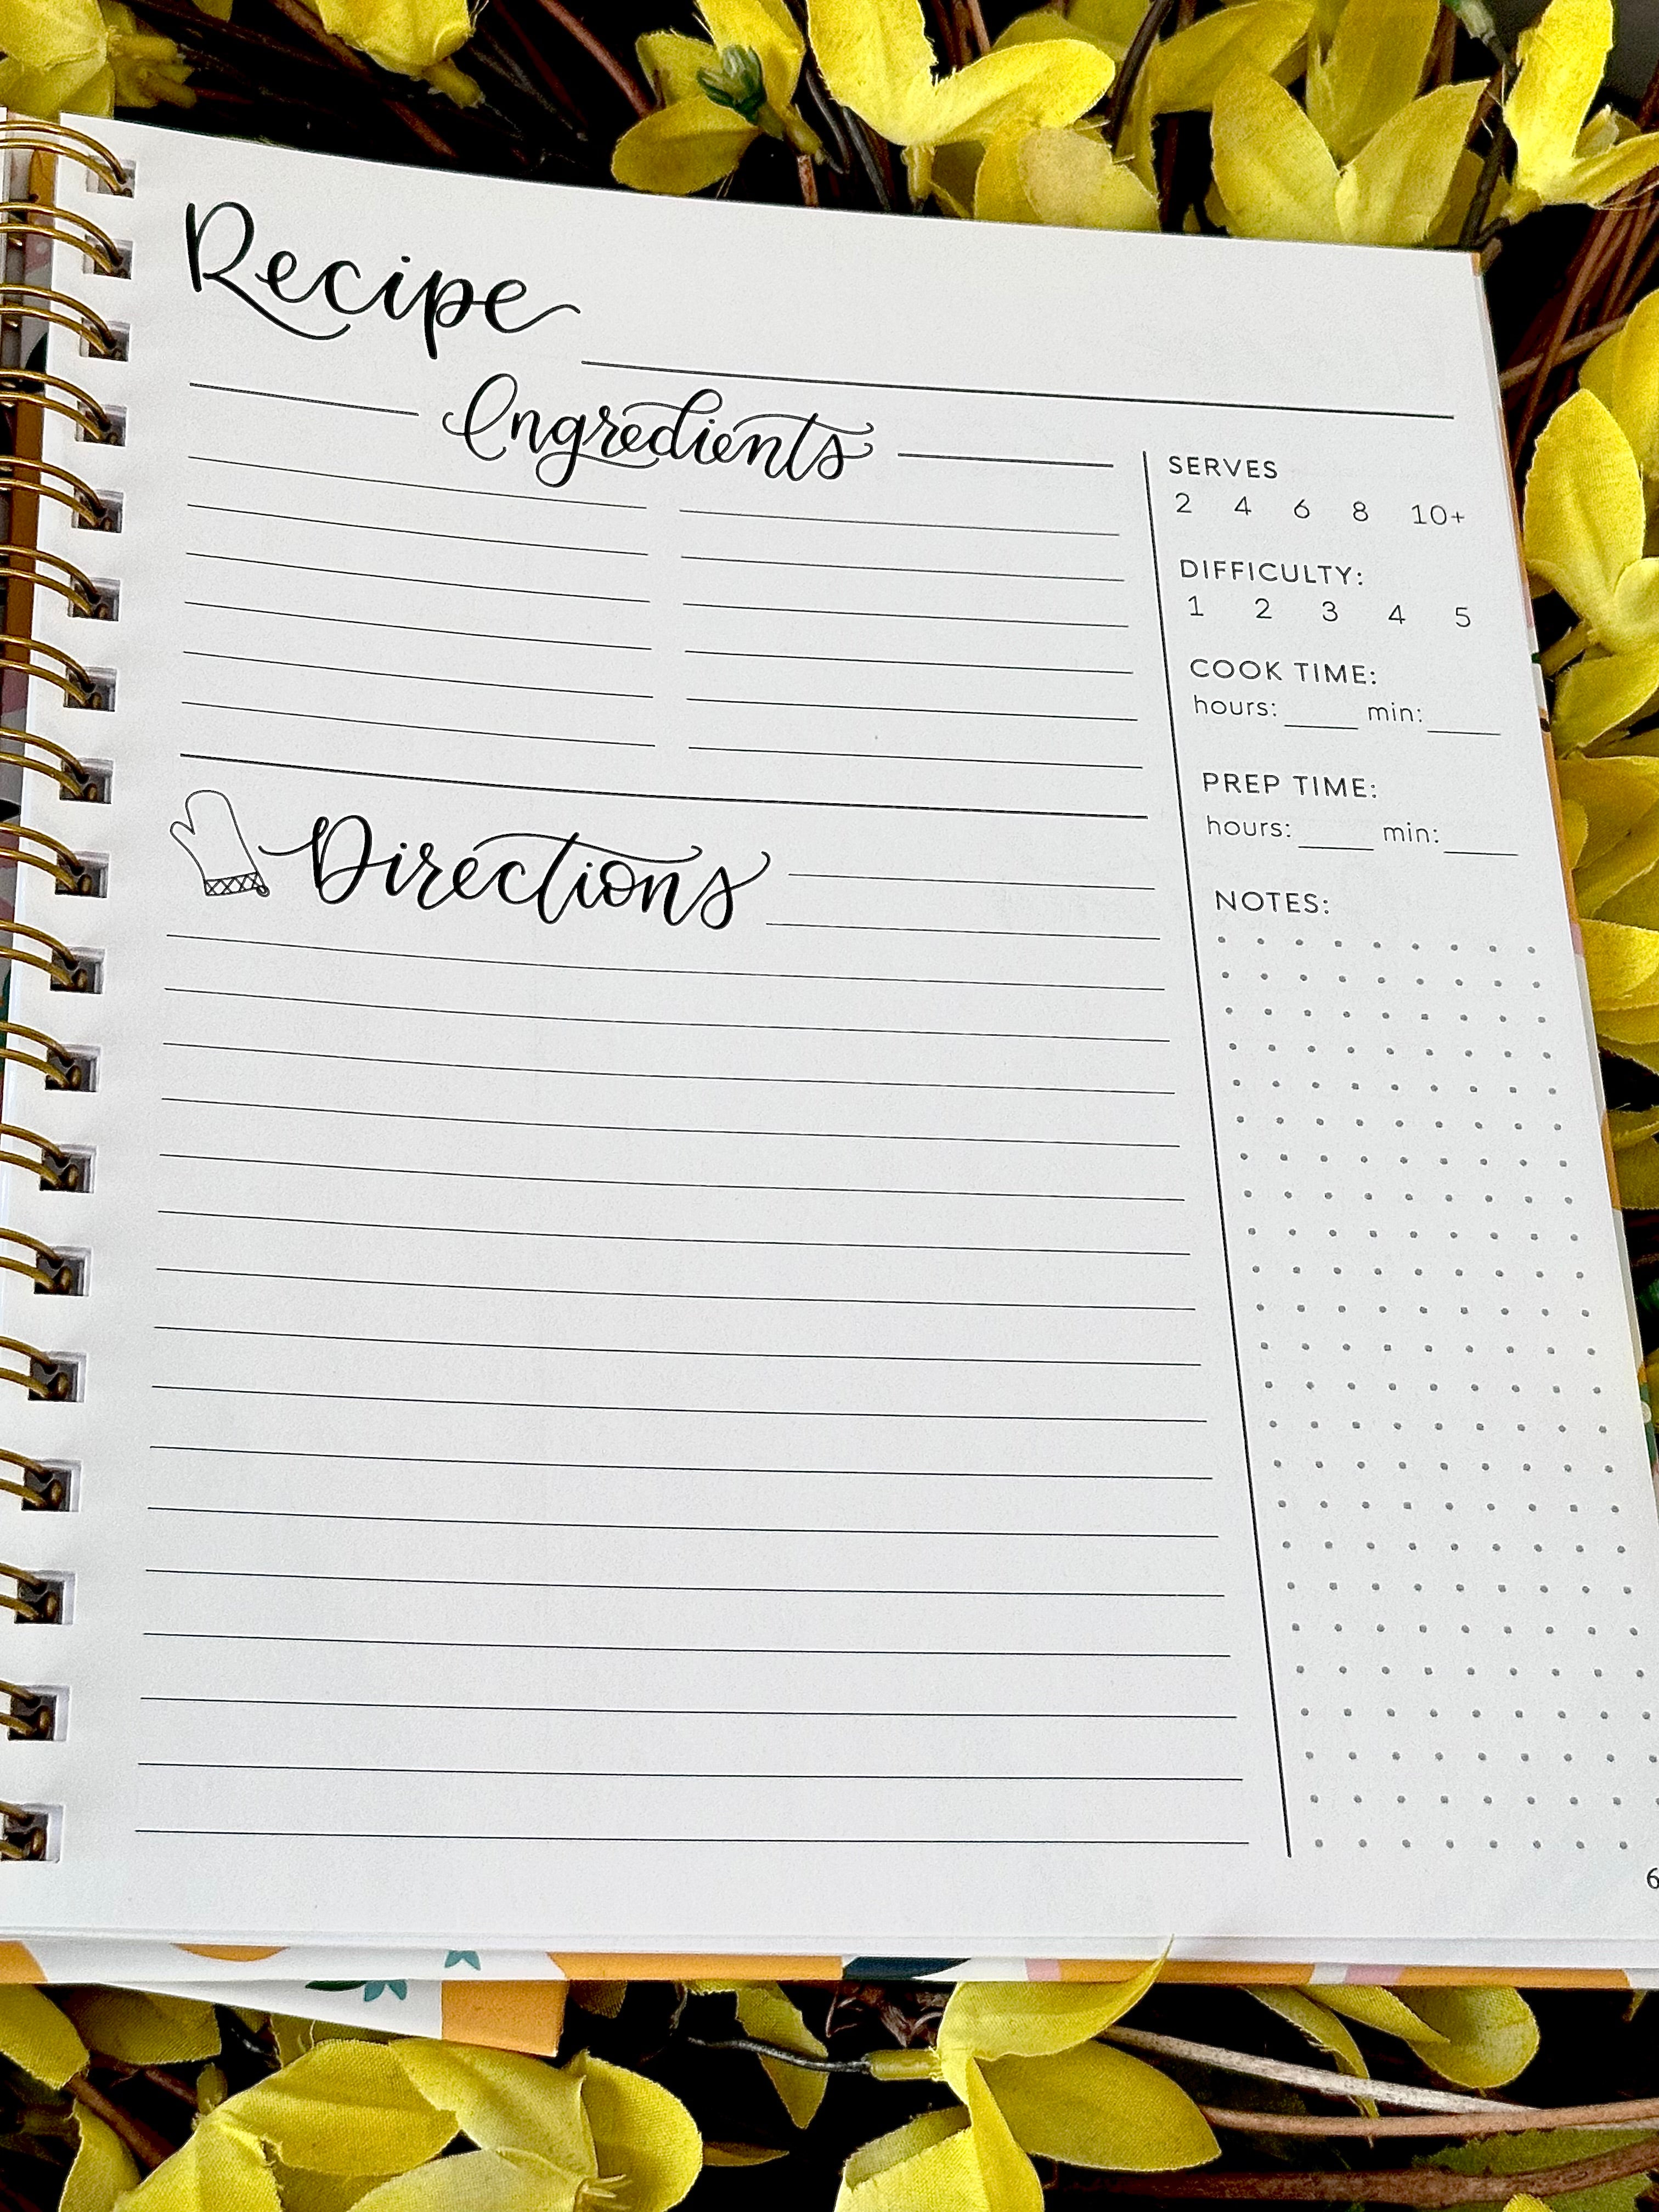 Recipe
Ingredients
SERVES
2 4 6 8 10+
DIFFICULTY:
1 2 3 4 5
COOK TIME:
hours: min:
PREP TIME:
hours: min:
NOTES:
Directions
6